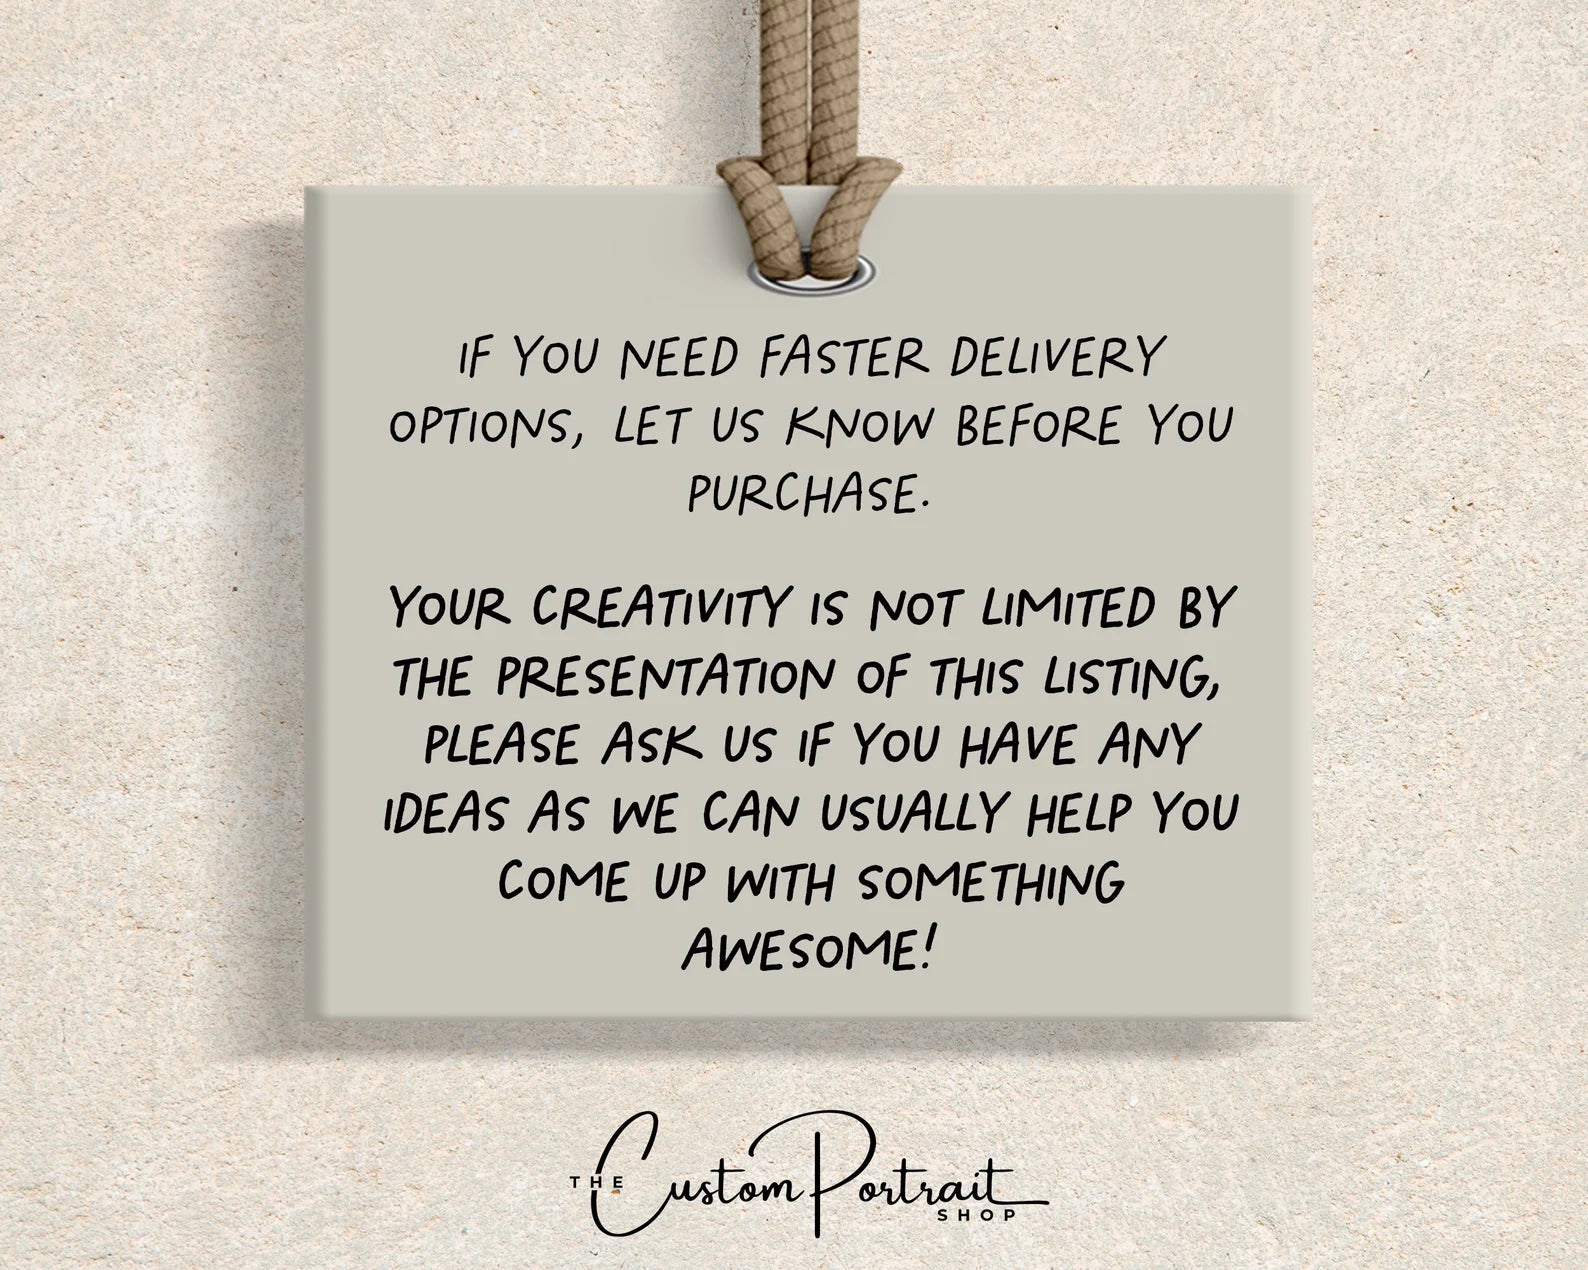 IF YOU NEED FASTER DELIVERY
OPTIONS, LET US KNOW BEFORE YOU
PURCHASE.
YOUR CREATIVITY IS NOT LIMITED BY
THE PRESENTATION OF THIS LISTING,
PLEASE ASK US IF YOU HAVE ANY
IDEAS AS WE CAN USUALLY HELP YOU
COME UP WITH SOMETHING
AWESOME!
THE Custom Portrait
SHOP